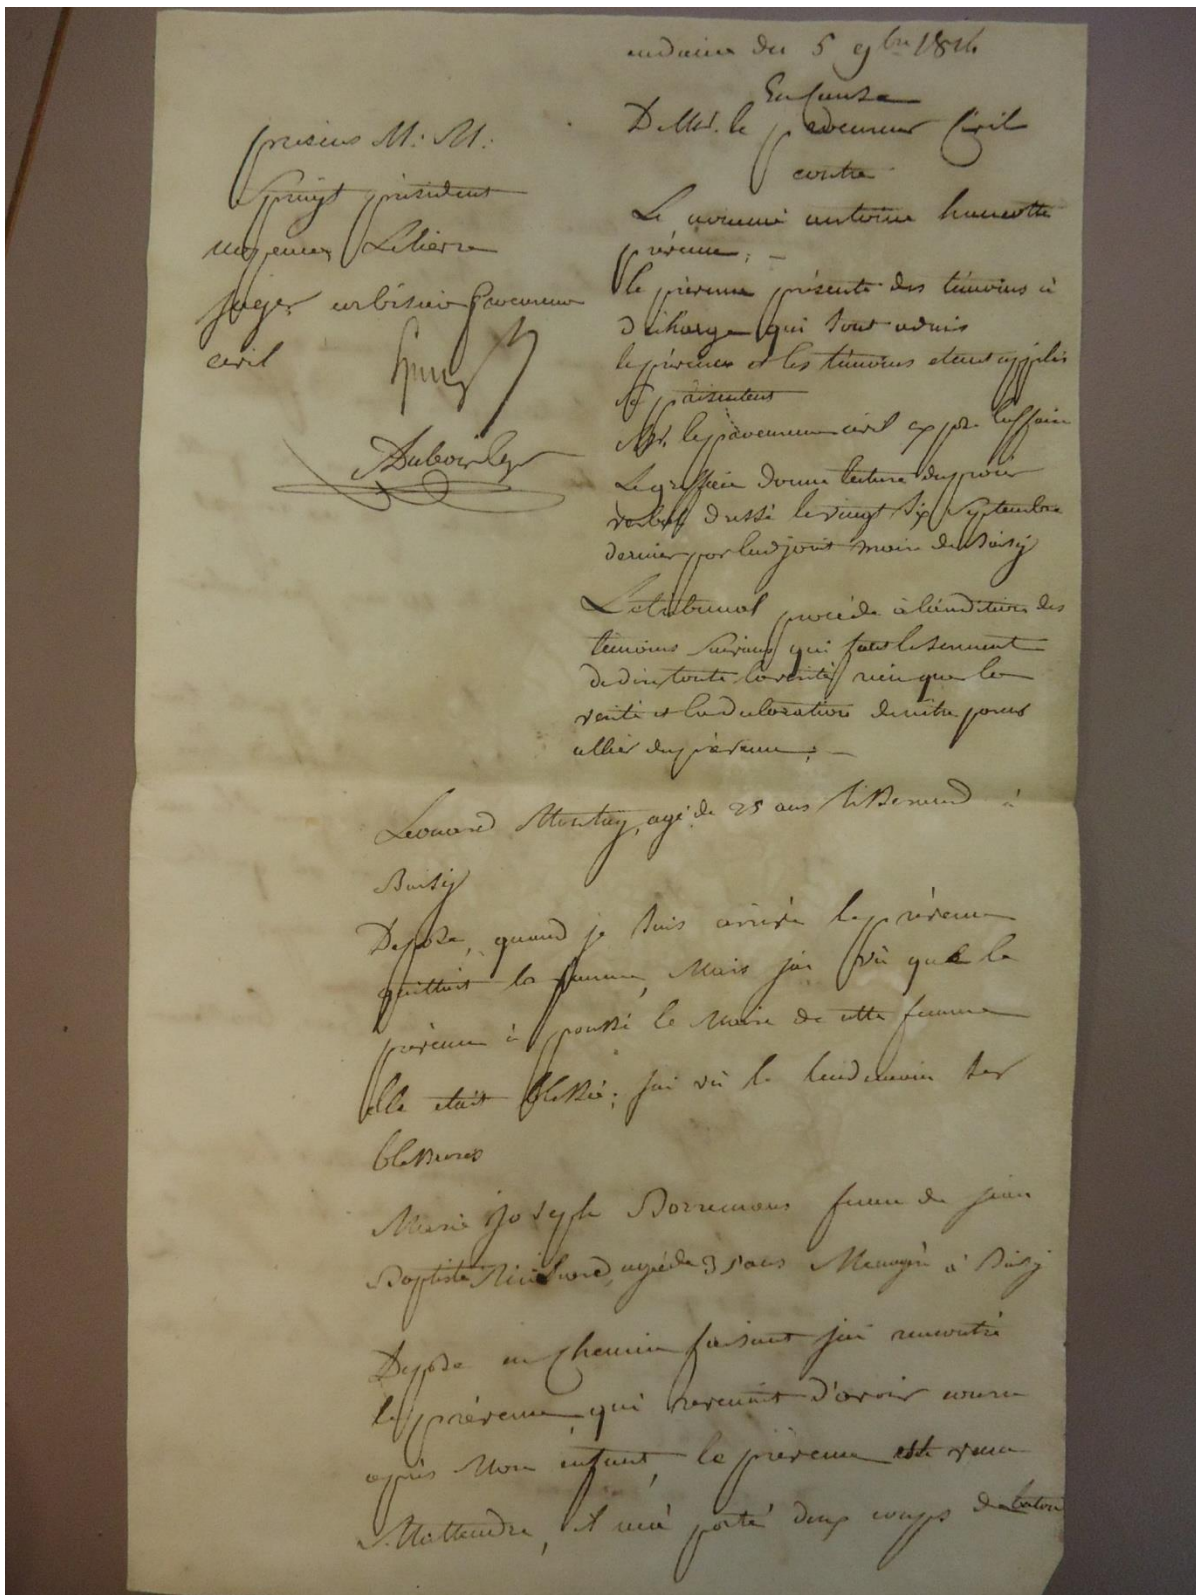 audience du 5 9bre 1814
En Cause
De Mr. le procureur Civil
contre
Le nommé antoine hanotte
prévenu; —
le prévenu présente des témoins à
décharge qui sont admis
le prévenu et les témoins etant appellés
se présentent
Mr. le procureur civil expose l'affaire
Le greffier donne lecture du procès
verbal dressé le vingt six Septembre
dernier par l'adjoint maire de Boisy
Le tribunal procède à l'audition des
témoins suivans qui font le serment
de dire toute la verité rien que la
verité et la declaration de n'être parens
alliés du prévenu; —
présens M: M:
président
Lelièvre
juges Procureur
civil
Dubois
Leonard agé de 25 ans à
Boisy
Depose, quand je suis arrivé le prévenu
quittait la femme, Mais j'ai vû que le
prévenu à poussé la Main de cette femme
elle etait blessée; j'ai vû le lendemain ses
blessures
Marie Joseph Borremans femme de jean
Baptiste agée de 35 ans Menagère à Boisy
Depose en Chemin faisant j'ai rencontré
le prévenu qui revenait d'avoir couru
après Mon enfant, le prévenu est venu
M'attendre, il m'a porté deux coups de baton